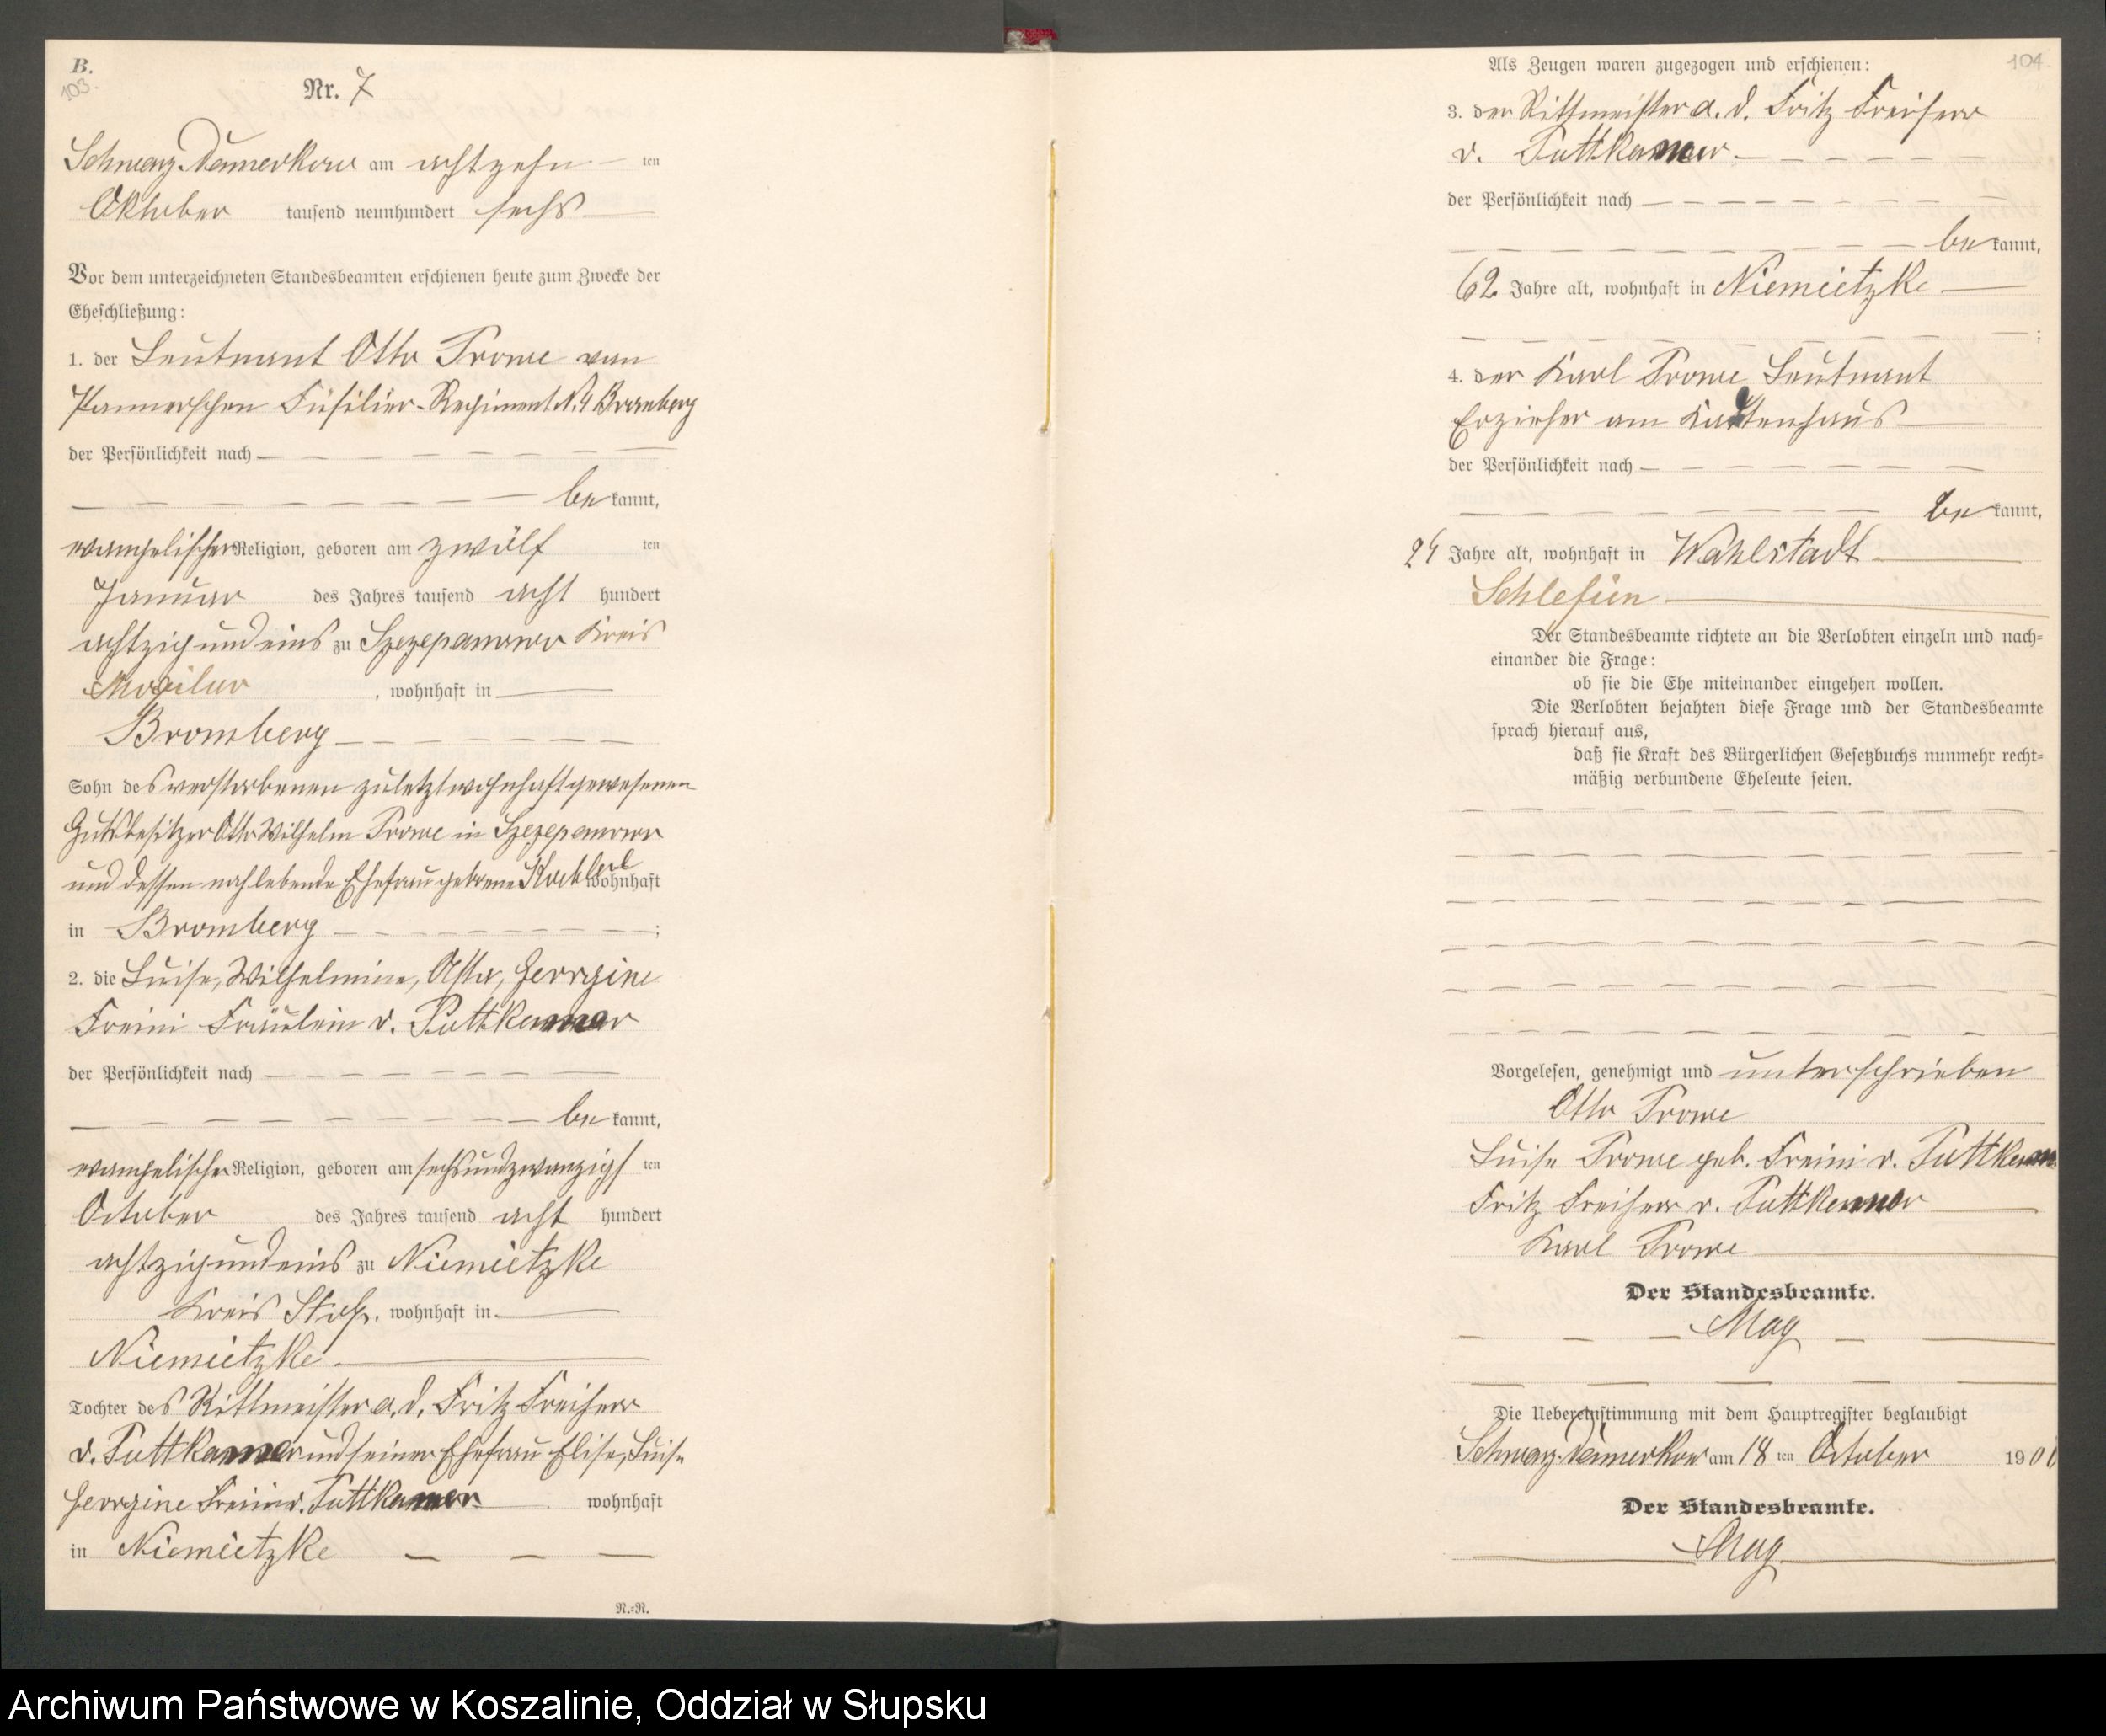 B.
103.
Nr. 7
Schwarz-Damerkow am achtzehn ten
Oktober tausend neunhundert sechs
Vor dem unterzeichneten Standesbeamten erschienen heute zum Zwecke der
Eheschließung:
1. der Leutnant Otto Prowe vom
Pommerschen Füsilier-Regiment N. 4 Bromberg
der Persönlichkeit nach
be kannt,
evangelischer Religion, geboren am zwölf ten
Januar des Jahres tausend acht hundert
achtzig und eins zu Szczepanowo Kreis
Mogilno, wohnhaft in
Bromberg
Sohn des verstorbenen zuletzt wohnhaft gewesenen
Gutsbesitzer Otto Wilhelm Prowe in Szczepanowo
und dessen nachlebende Ehefrau geborene wohnhaft
in Bromberg ;
2. die Luise, Wilhelmine, Georgine
Freiin Fräulein v. Puttkamer
der Persönlichkeit nach
be kannt,
evangelischer Religion, geboren am sechsundzwanzigs ten
October des Jahres tausend acht hundert
achtzig und eins zu Niemietzke
Kreis Stolp, wohnhaft in
Niemietzke
Tochter des Rittmeister a. d. Fritz Freiherr
v. Puttkamer und seiner Ehefrau Elise, Luise
Georgine Freiin v. Puttkamer wohnhaft
in Niemietzke
N.=N.
Als Zeugen waren zugezogen und erschienen:
104.
3. der Rittmeister a. d. Fritz Freiherr
v. Puttkamer
der Persönlichkeit nach
be kannt,
62 Jahre alt, wohnhaft in Niemietzke
;
4. der Karl Prowe Leutnant
Erzieher am Kadtenhaus
der Persönlichkeit nach
be kannt,
24 Jahre alt, wohnhaft in Wahlstadt
Schlesien
Der Standesbeamte richtete an die Verlobten einzeln und nach=
einander die Frage:
ob sie die Ehe miteinander eingehen wollen.
Die Verlobten bejahten diese Frage und der Standesbeamte
sprach hierauf aus,
daß sie Kraft des Bürgerlichen Gesetzbuchs nunmehr recht=
mäßig verbundene Eheleute seien.
Vorgelesen, genehmigt und unterschrieben
Otto Prowe
Luise Prowe geb. Freiin v. Puttkam
Fritz Freiherr v. Puttkamer
Karl Prowe
Der Standesbeamte.
Mag
Die Uebereinstimmung mit dem Hauptregister beglaubigt
Schwarz-Damerkow am 18 ten October 1906
Der Standesbeamte.
Mag
Archiwum Państwowe w Koszalinie, Oddział w Słupsku